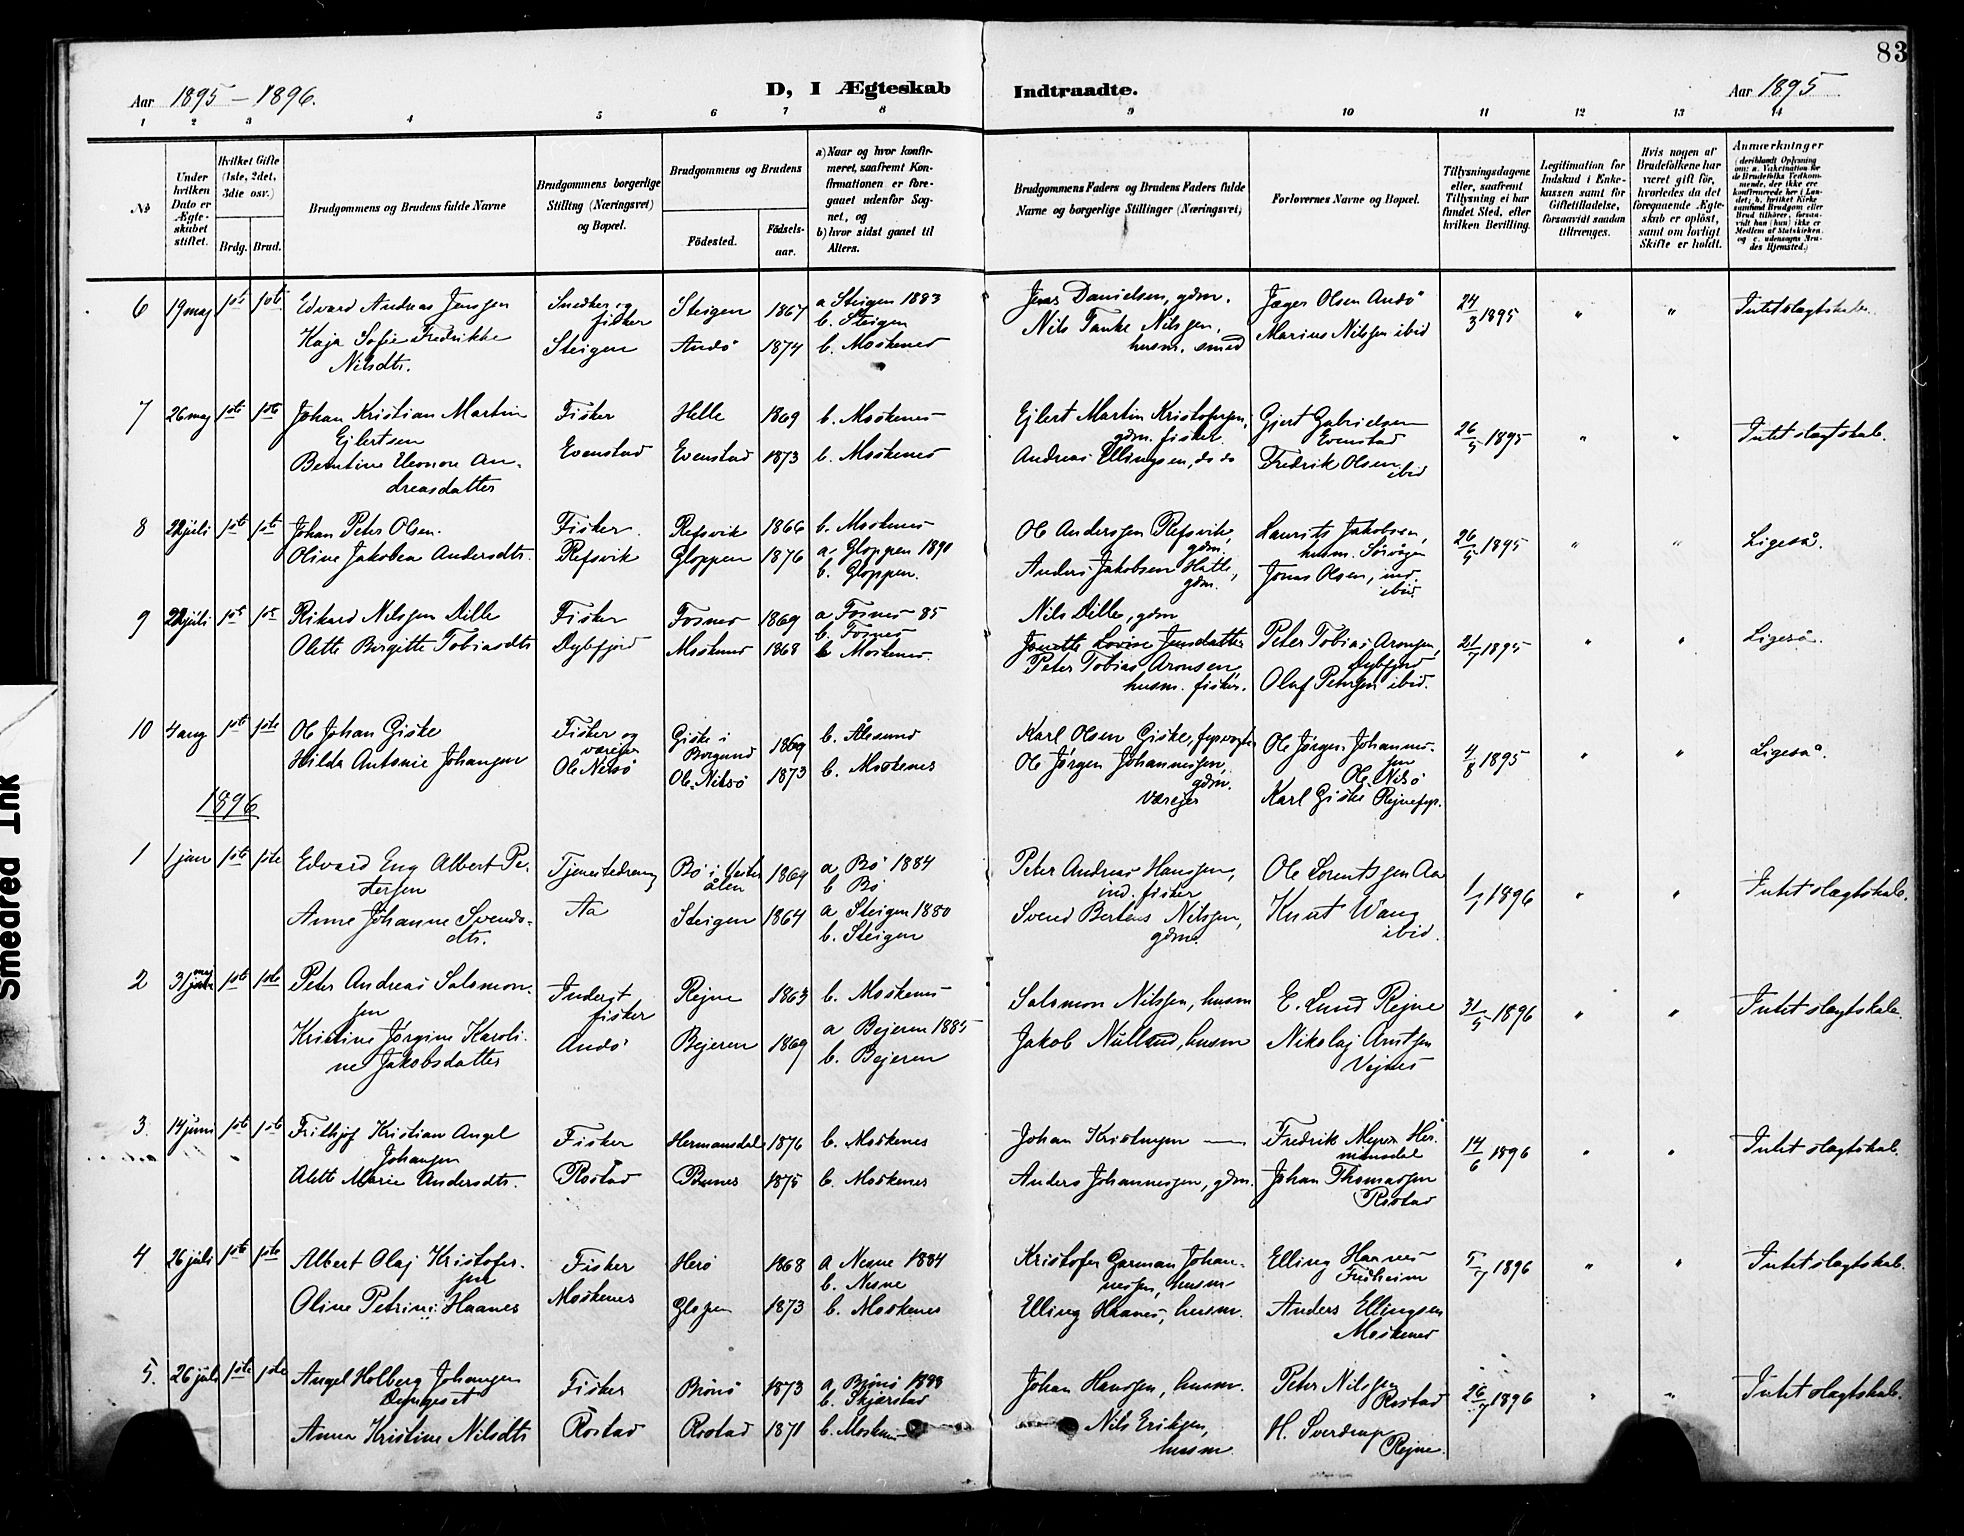 83
Aar 1895 - 1896.
D, I Ægteskab Indtraadte.
Aar 1895
1 2 3 4 5 6 7 8 9 10 11 12 13 14
№
Under hvilken Dato er Ægteskabet stiftet.
Hvilket Gifte (1ste, 2det, 3die osv.)
Brdg. Brud.
Brudgommens og Brudens fulde Navne
Brudgommens borgerlige Stilling (Næringsvei) og Bopæl.
Brudgommens og Brudens
Fødested. Fødselsaar.
a) Naar og hvor konfirmeret, saafremt Konfirmationen er foregaaet udenfor Sognet, og
b) hvor sidst gaaet til Alters.
Brudgommens Faders og Brudens Faders fulde Navne og borgerlige Stillinger (Næringsvei)
Forlovernes Navne og Bopæl.
Tillysningsdagene eller, saafremt Tillysning ei har fundet Sted, efter hvilken Bevilling.
Legitimation for Indskud i Enkekassen samt for Giftetilladelse, forsaavidt saadan tiltrænges.
Hvis nogen af Brudefolkene har været gift før, hvorledes da det foregaaende Ægteskab er opløst, samt om lovligt Skifte er holdt.
Anmærkninger
6 19 maj 1ste 1ste Edvard Andreas Jensen Snedker og fisker Steigen 1867 a Steigen 1883 b. Steigen Jens Danielsen, gdm. Jæger Olsen Andö 24/3 1895 " " Intet slagtskab.
Kaja Sofie Fredrikke Nilsdtr. Steigen Andö 1874 b. Moskenes Nils Tanke Nilssen, husm. smed Marius Nilssen ibid
7 26 maj 1ste 1ste Johan Kristian Martin Ejlertsen Fisker Helle 1869 b. Moskenes Ejlert Martin Kristofersen, gdm. fisker. Gjert Gabrielsen Evenstad 26/5 1895 " " Intet slagtskab.
Berntine Eleonore Andreasdatter Evenstad Evenstad 1873 b. Moskenes Andreas Ellingsen, do do Fredrik Olsen ibid
8 juli 1ste 1ste Johan Peter Olsen. Fisker Refsvik 1866 b. Moskenes Ole Anderssen Refsvik, gdm. Laurits Jakobsen, husm. Sörvågen 26/5 1895 " " Ligeså.
Olive Jakobea Andersdtr. Refsvik Gloppen 1876 a. Gloppen 1890 b. Gloppen. Anders Jakobsen Hatle, gdm. Jonas Olsen, ind. ibid.
9 juli 1ste 1ste Rikard Nilssen Dille Fisker Fosnes 1869 a Fosnes 85 b. Fosnes Nils Dille, gdm
Olette Birgitte Tobiasdtr Dybfjord Moskenes 1868 b Moskenes. Lovise Jensdatter Peter Tobias Aronsen, husm. fisker. Peter Tobias Aronsen, Dybfjord Olaf Petersen ibid. 21/7 1895 " " Ligeså.
10 4 aug 1ste 1ste Ole Johan Giske Fisker og væreier Giske i Borgund 1869 b. Ålesund Karl Olsen Giske, fyrvogter Ole Jörgen Johannessen Ole Nilsö 4/8 1895 " " Ligeså
Hilda Antonie Johansen Ole Nilsö Ole Nilsö 1873 b. Moskenes Ole Jörgen Johannessen, gdm. Væreier Karl Giske Rejnefyr.
1896
1 1 jan 1ste 1ste Edvard Eng Albert Petersen Tjenestedreng Bö i Vesterålen 1869 a Bö 1884 b Bö Peter Andreas Hanssen, ind. fisker Ole Lorentssen Aa 1/1 1896 " " Intet slagtskab.
Anne Johanne Svendsdtr. Aa Steigen 1864 a Steigen 1880 b. Steigen Svend Nilssen, gdm. Knut Wang ibid.
2 31 maj 1ste 1ste Peter Andreas Salomonsen Inderst fisker Rejne 1863 b. Moskenes Salomon Nilssen, husm E. Lund Rejne 31/5 1896 " " Intet slagtskab.
Kristine Jörgine Karoline Jakobsdatter Andö Bejeren 1869 a Bejeren 1885 b. Bejeren Jakob Nulland, husm Nikolaj Arntsen Vejnes
3. 14 juni 1ste 1ste Frithjof Kristian Angel Johansen Fisker Hermansdal 1876 b. Moskenes Johan Kristensen — Fredrik Meyer Hermansdal 14/6 1896 " " Intet slagtskab.
Alette Marie Andersdtr. Rostad Bunes 1875 b. Moskenes Anders Johannessen, gdm. Johan Thomassen Rostad
4 26 juli 1ste 1ste Albert Olaj Kristofersen Fisker Herö 1868 a Nesne 1884 b. Nesne Kristofer Garman Johannessen, husm Elling Haanes Fredheim 5/7 1896 " " Intet slagtskab.
Oline Petrine Haanes Moskenes Glopen 1873 b. Moskenes Elling Haanes, husm. Anders Ellingsen Moskenes
5. 26 juli 1ste 1ste Angel Holberg Johansen Fisker Brönö 1873 a Brönö b. Skjærstad Johan Hanssen, husm. Peter Nilssen Rostad 26/7 1896 " " Intet slagtskab.
Anna Kristine Nilsdtr Rostad Rostad 1871 b. Moskenes Nils Eriksen, husm. H. Sverdrup Rejne.
Smeared Ink